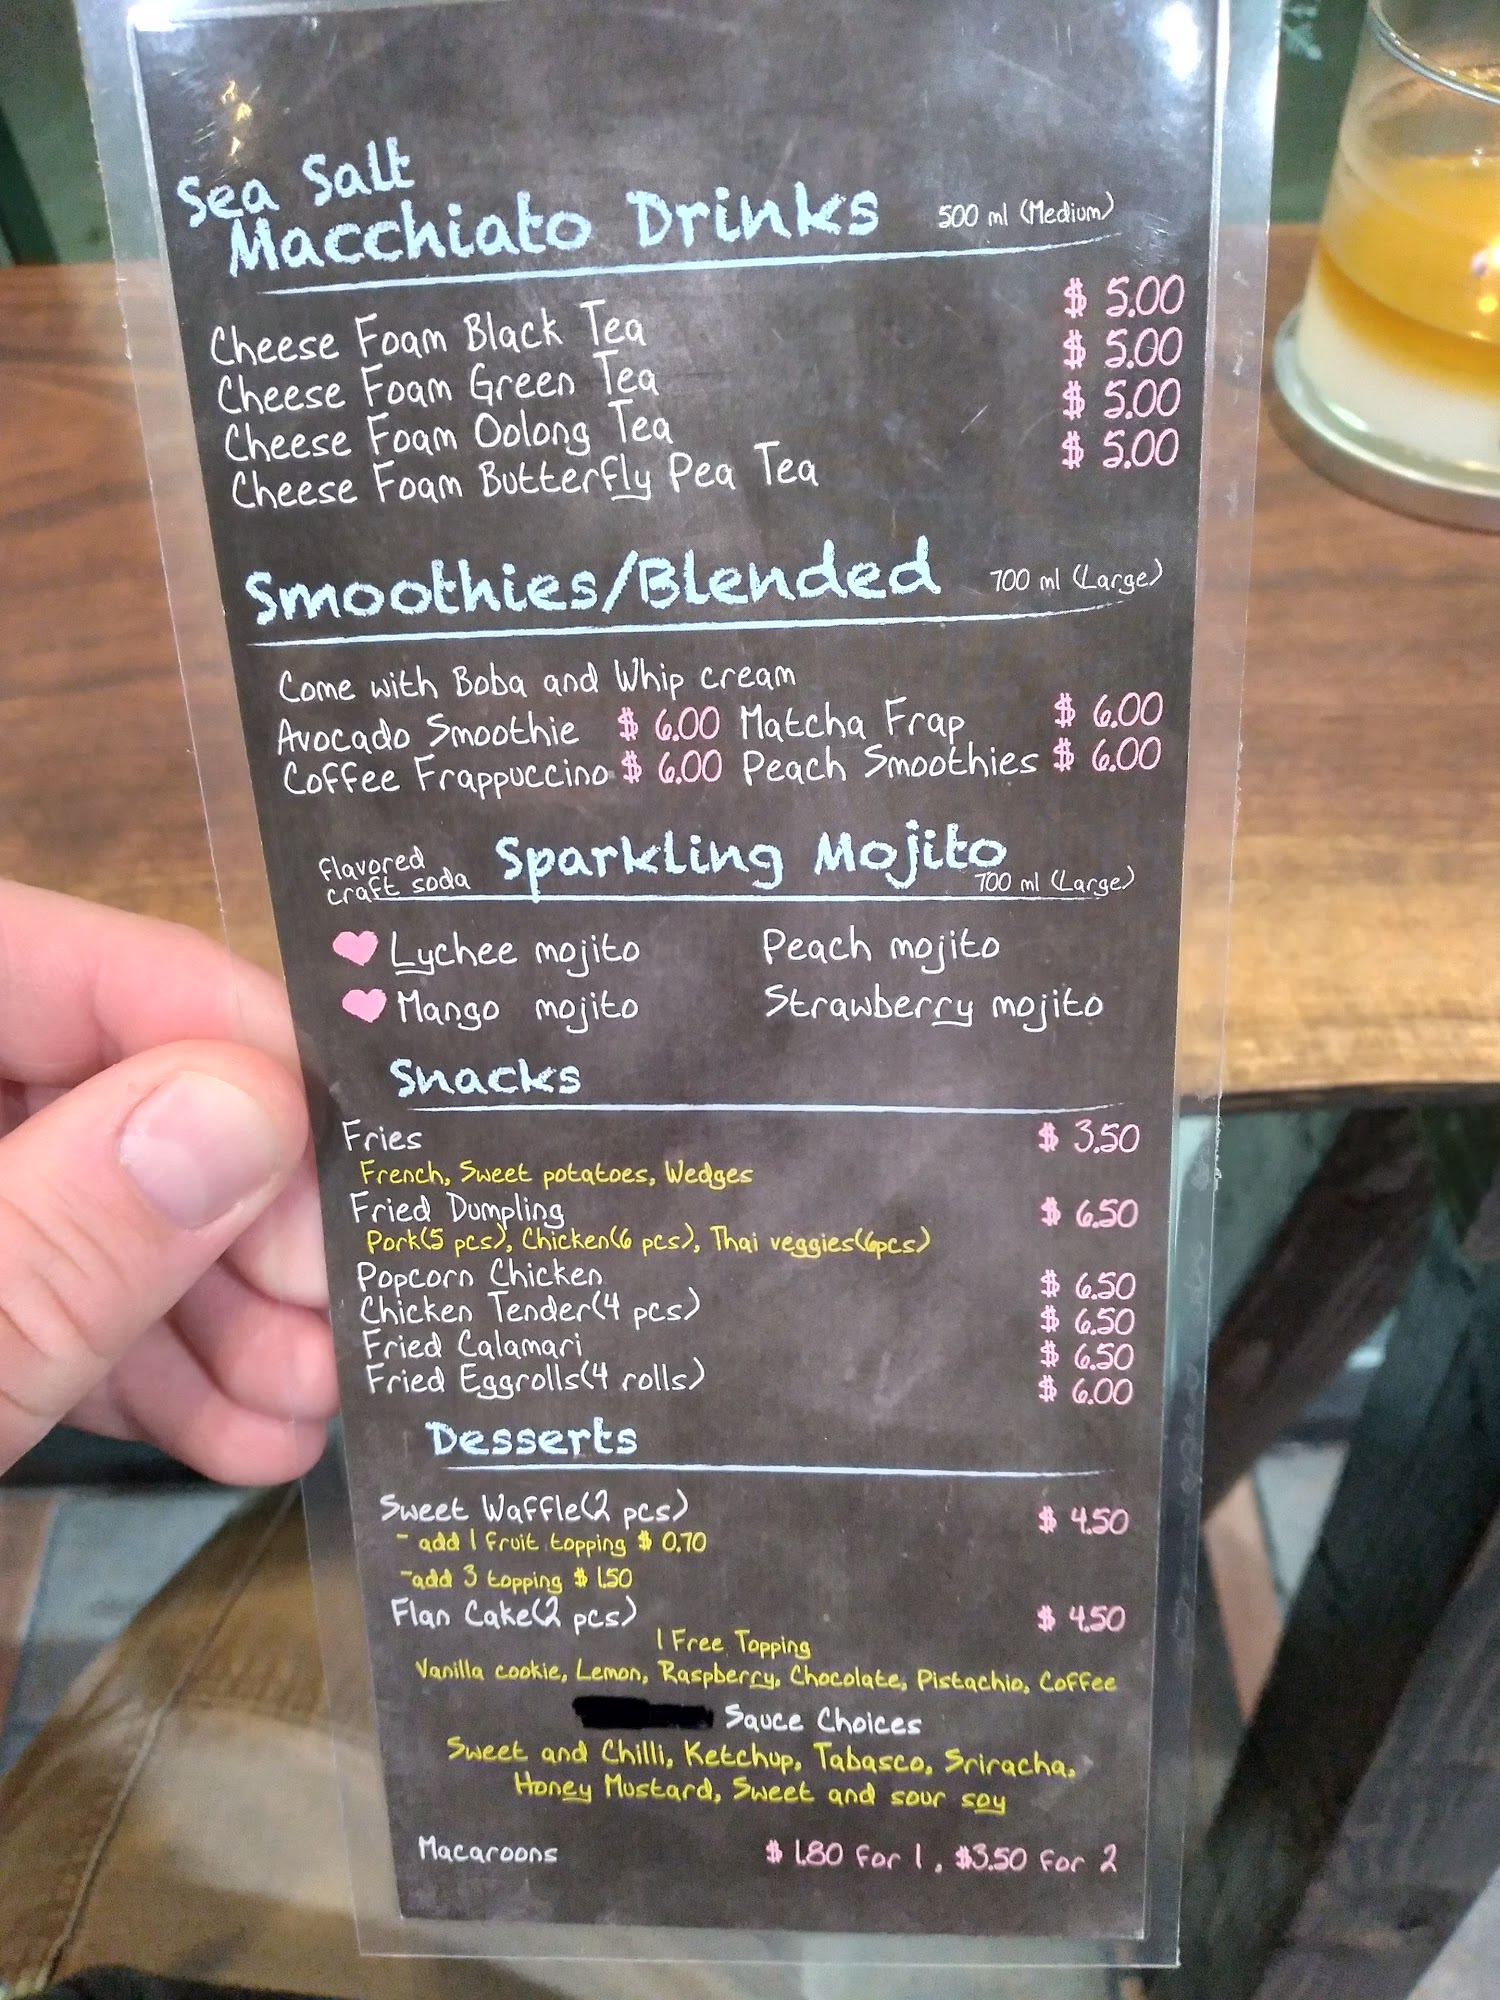 Sea Salt
Macchiato Drinks 500 ml (Medium)
Cheese Foam Black Tea $ 5.00
Cheese Foam Green Tea $ 5.00
Cheese Foam Oolong Tea $ 5.00
Cheese Foam Butterfly Pea Tea $ 5.00
Smoothies/Blended 700 ml (Large)
Come with Boba and Whip cream
Avocado Smoothie $ 6.00 Matcha Frap $ 6.00
Coffee Frappuccino $ 6.00 Peach Smoothies $ 6.00
flavored
craft soda Sparkling Mojito 700 ml (Large)
Lychee mojito Peach mojito
Mango mojito Strawberry mojito
Snacks
Fries $ 3.50
French, Sweet potatoes, Wedges
Fried Dumpling $ 6.50
Pork(5 pcs), Chicken(6 pcs), Thai veggies(6pcs)
Popcorn Chicken $ 6.50
Chicken Tender(4 pcs) $ 6.50
Fried Calamari $ 6.50
Fried Eggrolls(4 rolls) $ 6.00
Desserts
Sweet Waffle(2 pcs) $ 4.50
- add 1 fruit topping $ 0.70
-add 3 topping $ 1.50
Flan Cake(2 pcs) $ 4.50
1 Free Topping
Vanilla cookie, Lemon, Raspberry, Chocolate, Pistachio, Coffee
Sauce Choices
Sweet and Chilli, Ketchup, Tabasco, Sriracha,
Honey Mustard, Sweet and sour soy
Macaroons $ 1.80 for 1, $3.50 for 2